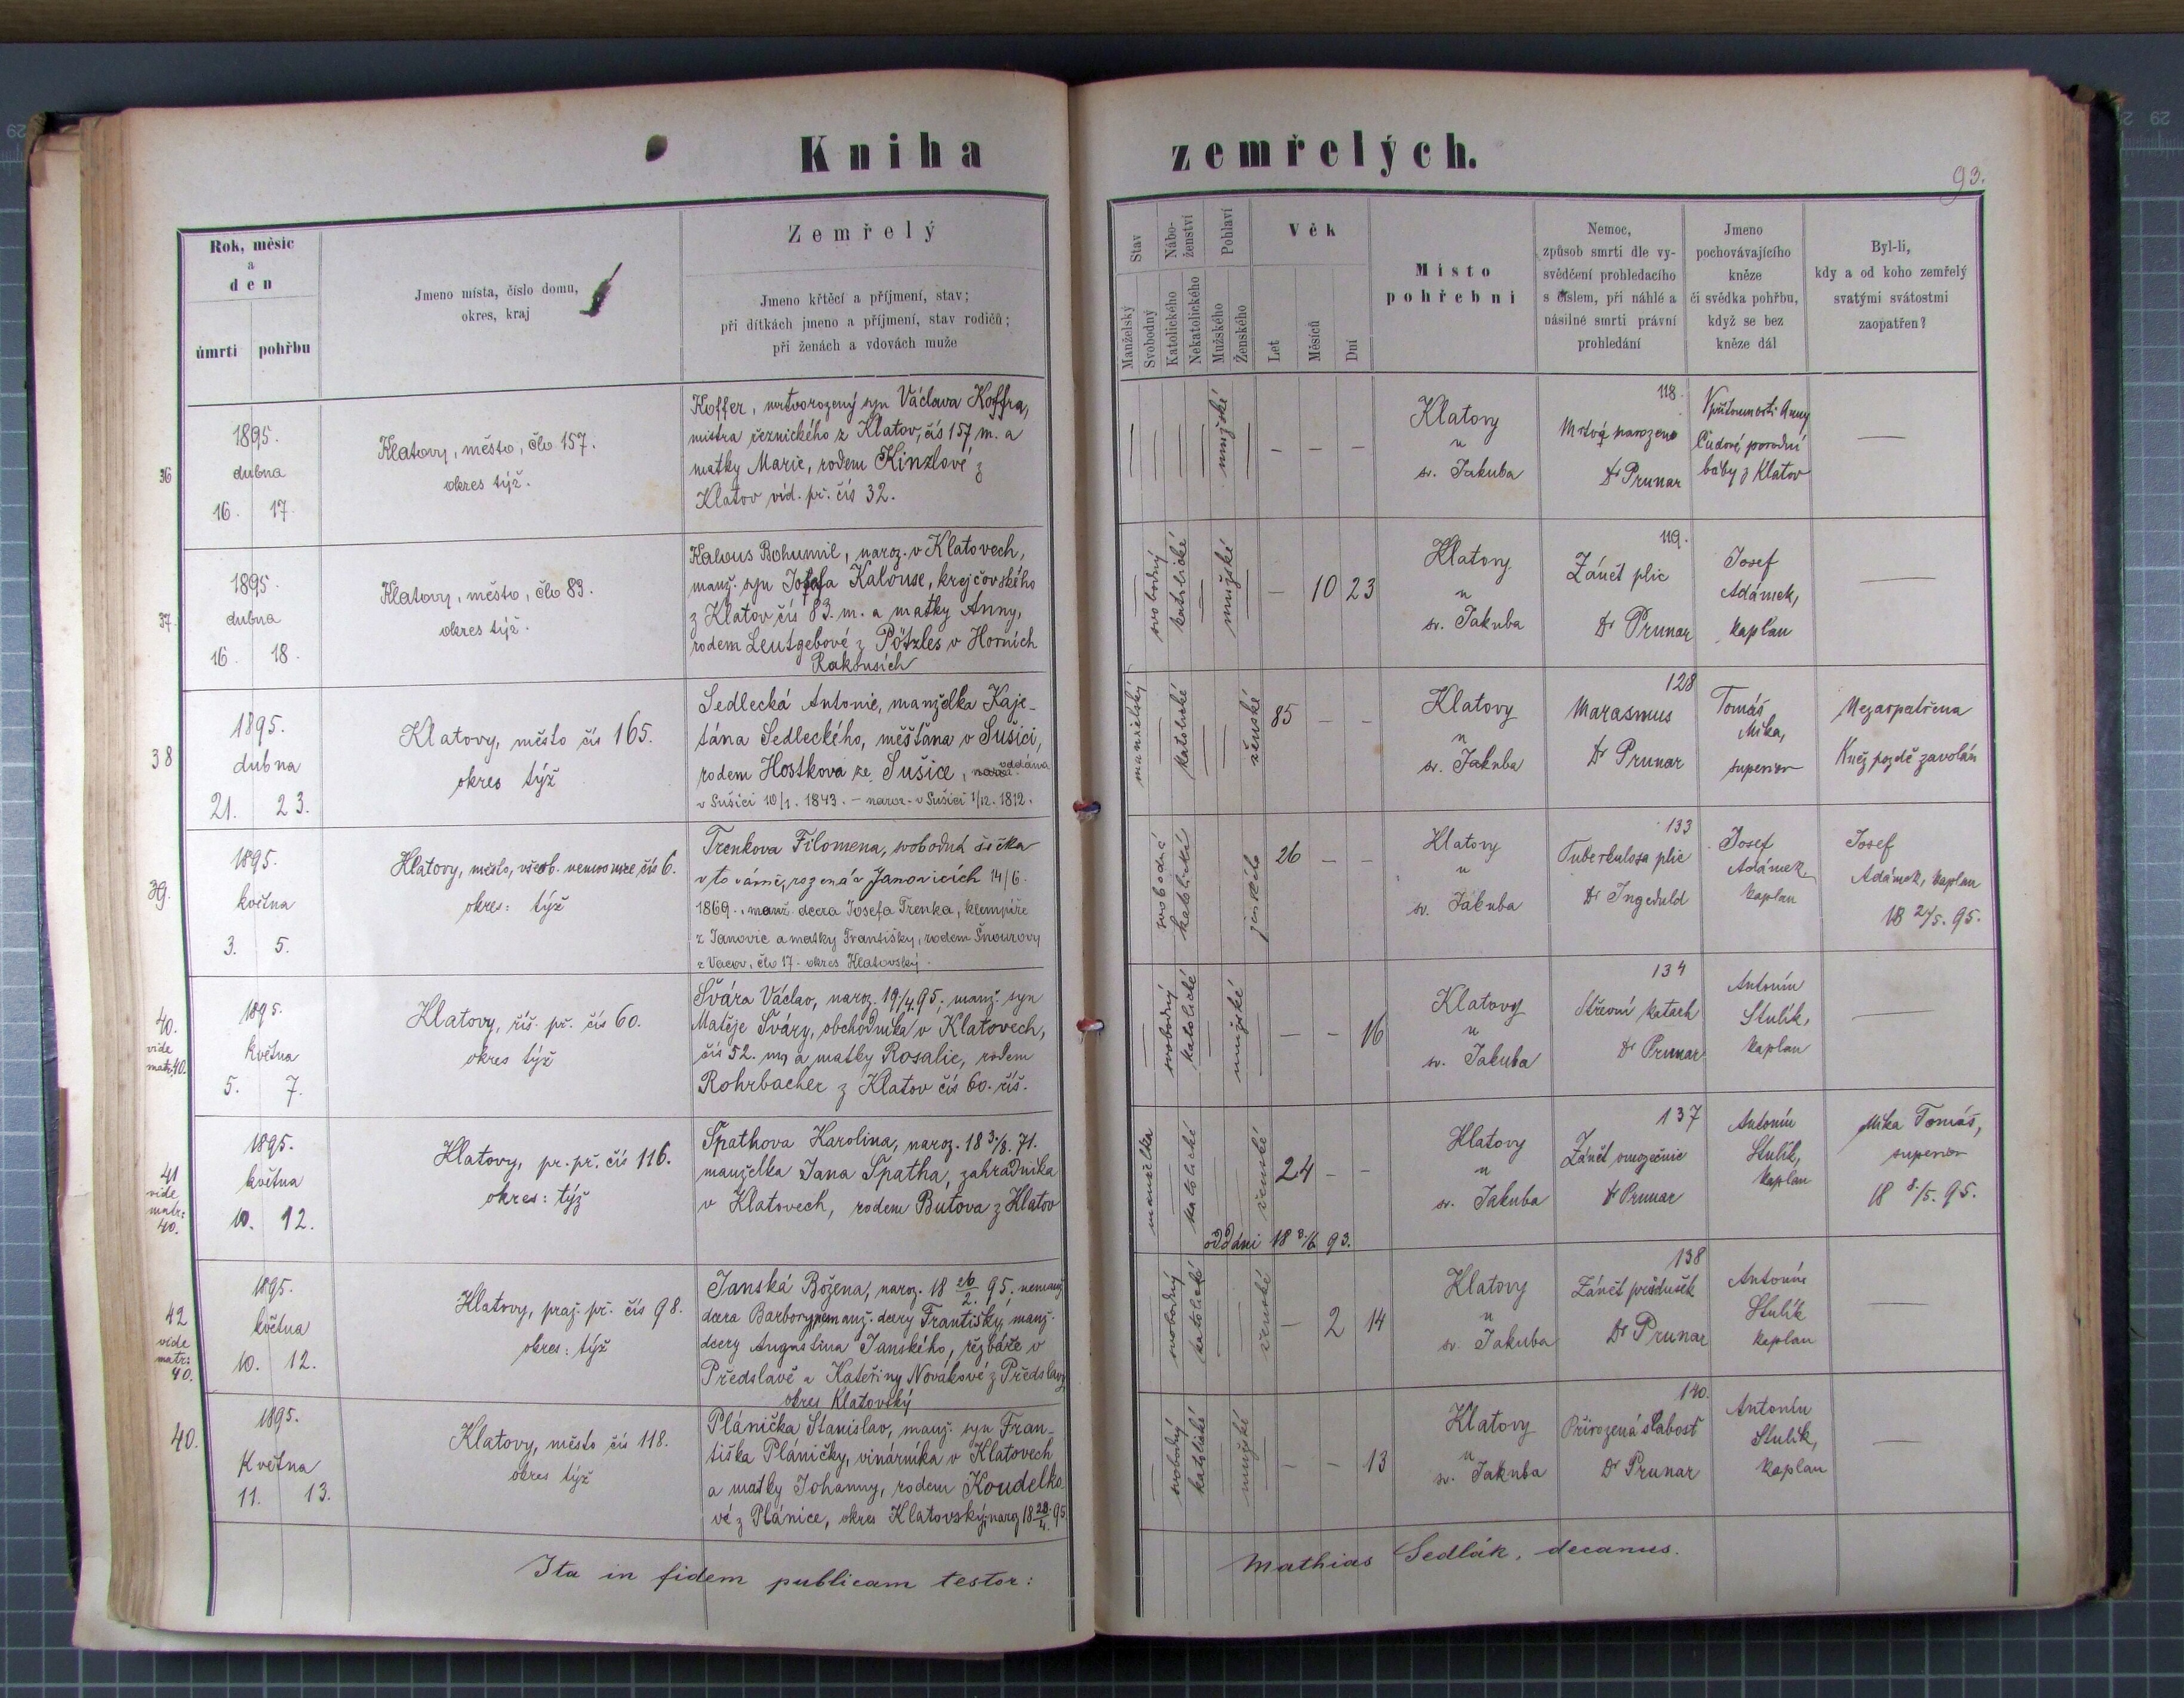 Kniha zemřelých.
93.
Rok, měsíc
a
den
úmrtí pohřbu
Jmeno místa, číslo domu,
okres, kraj
Zemřelý
Jmeno křtěcí a příjmení, stav;
při dítkách jmeno a příjmení, stav rodičů;
při ženách a vdovách muže
Stav
Manželský
Svobodný
Nábo-
ženství
Katolického
Nekatolického
Pohlaví
Mužského
Ženského
Věk
Let
Měsíců
Dní
Místo
pohřební
Nemoc,
způsob smrti dle vy-
svědčení prohledacího
s číslem, při náhlé a
násilné smrti právní
prohledání
Jmeno
pochovávajícího
kněze
či svědka pohřbu,
když se bez
kněze dál
Byl-li,
kdy a od koho zemřelý
svatými svátostmi
zaopatřen?
36
1895.
dubna
16. 17.
Klatovy, město, člo 157.
okres týž.
Koffer, mrtvorozený syn Václava Koffra,
mistra řeznického z Klatov, čís 157 m. a
matky Marie, rodem Kinzlové z
Klatov víd. př. čís 32.
mužské
– – –
Klatovy
u
sv. Jakuba
118.
Mrtvě narozeno
Dr Prunar
V přítomnosti Anny
porodní
báby z Klatov
—
37.
1895.
dubna
16. 18.
Klatovy, město, člo 83.
okres týž.
Kalous Bohumil, naroz. v Klatovech,
manž. syn Josefa Kalouse, krejčovského
z Klatov čís 83. m. a matky Anny,
rodem Leutgebové z Pötzles v Horních
Rakousích
svobodný
katolické
mužské
– 10 23
Klatovy
u
sv. Jakuba
119.
Zánět plic
Dr Prunar
Josef
Adámek,
kaplan
—
38
1895.
dubna
21. 23.
Klatovy, město čís 165.
okres týž
Sedlecká Antonie, manželka Kaje-
tána Sedleckého, měšťana v Sušici,
rodem Hostkova ze Sušice, oddána
v Sušici 10/1. 1843. – naroz. v Sušici 1/12. 1812.
manželský
katolické
ženské
85 – –
Klatovy
u
sv. Jakuba
128
Marasmus
Dr Prunar
Tomáš
Mika,
superior
Nezaopatřena
Kněz pozdě zavolán
39.
1895.
května
3. 5.
Klatovy, město, všeob. nemocnice čís 6.
okres: týž
Trenkova Filomena, svobodná šička
v továrně, rozená v Janovicích 14/6.
1869., manž. dcera Josefa Trenka, klempíře
z Janovic a matky Františky, rodem Šnourovy
z Vacov, člo 17. okres Klatovský.
svobodná
katolické
ženského
26 – –
Klatovy
u
sv. Jakuba
133
Tuberkulosa plic
Dr Ingeduld
Josef
Adámek,
kaplan
Josef
Adámek, kaplan
18 2/5. 95.
40.
vide
matr. 40.
1895.
května
5. 7.
Klatovy, říš. př. čís 60.
okres týž
Švára Václav, naroz. 19/4 95, manž. syn
Matěje Šváry, obchodníka v Klatovech,
čís 52. m, a matky Rosalie, rodem
Rohrbacher z Klatov čís 60. říš.
svobodný
katolické
mužské
– – 16
Klatovy
u
sv. Jakuba
134
Střevní katarh
Dr Prunar
Antonín
Stulík,
kaplan
—
41
vide
matr:
40.
1895.
května
10. 12.
Klatovy, pr. př. čís 116.
okres: týž
Špathova Karolina, naroz. 18 3/8. 71.
manželka Jana Špatha, zahradníka
v Klatovech, rodem Butova z Klatov
manželka
katolické
ženské
24 – –
oddáni 18 93.
Klatovy
u
sv. Jakuba
137
Zánět pohrudnice
Dr Prunar
Antonín
Stulík,
kaplan
Mika Tomáš,
superior
18 8./5. 95.
42
vide
matr:
40.
1895.
května
10. 12.
Klatovy, praž. př. čís 98.
okres: týž
Janská Božena, naroz. 18 26/2. 95, nemanž.
dcera Barbory, nemanž. dcery Františky, manž.
dcery Augustina Janského, řezbáře v
Předslavě a Kateřiny Novákové z Předslavy
okres Klatovský
svobodný
katolické
ženské
– 2 14
Klatovy
u
sv. Jakuba
138
Zánět průdušek
Dr Prunar
Antonín
Stulík
kaplan
—
40.
1895.
Května
11. 13.
Klatovy, město čís 118.
okres týž
Plánička Stanislav, manž. syn Fran-
tiška Pláničky, vinárníka v Klatovech
a matky Johanny, rodem Koudelko-
vé z Plánice, okres Klatovský, naroz 18 28/4. 95
svobodný
katolické
mužské
– – 13
Klatovy
u
sv. Jakuba
140.
Přirozená slabosť
Dr Prunar
Antonín
Stulík,
kaplan
—
Ita in fidem publicam testor: Mathias Sedlák, decanus.